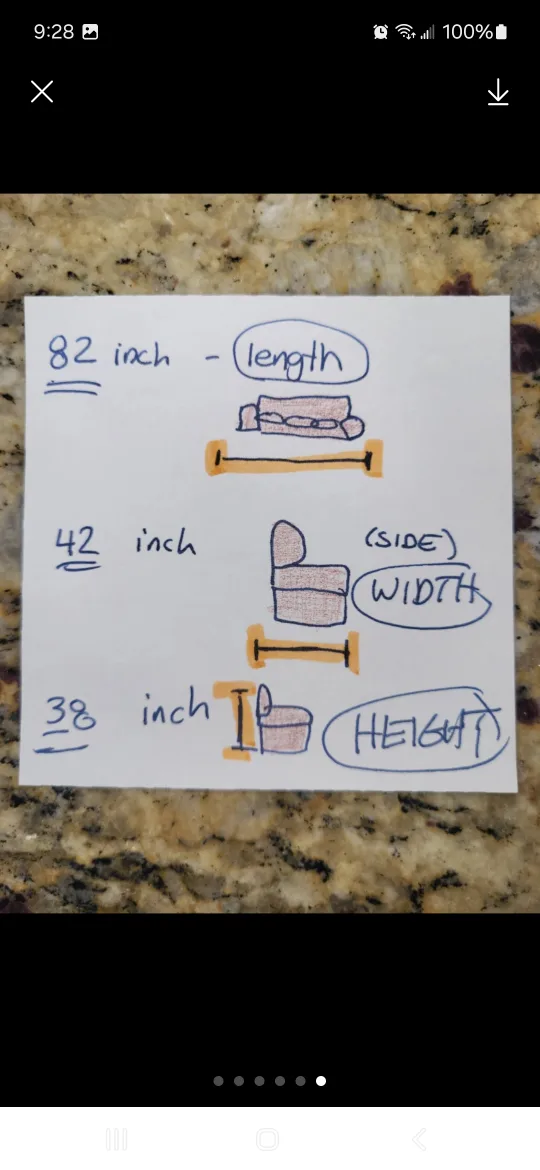 9:28 100%
82 inch - length
42 inch (SIDE)
WIDTH
38 inch HEIGHT